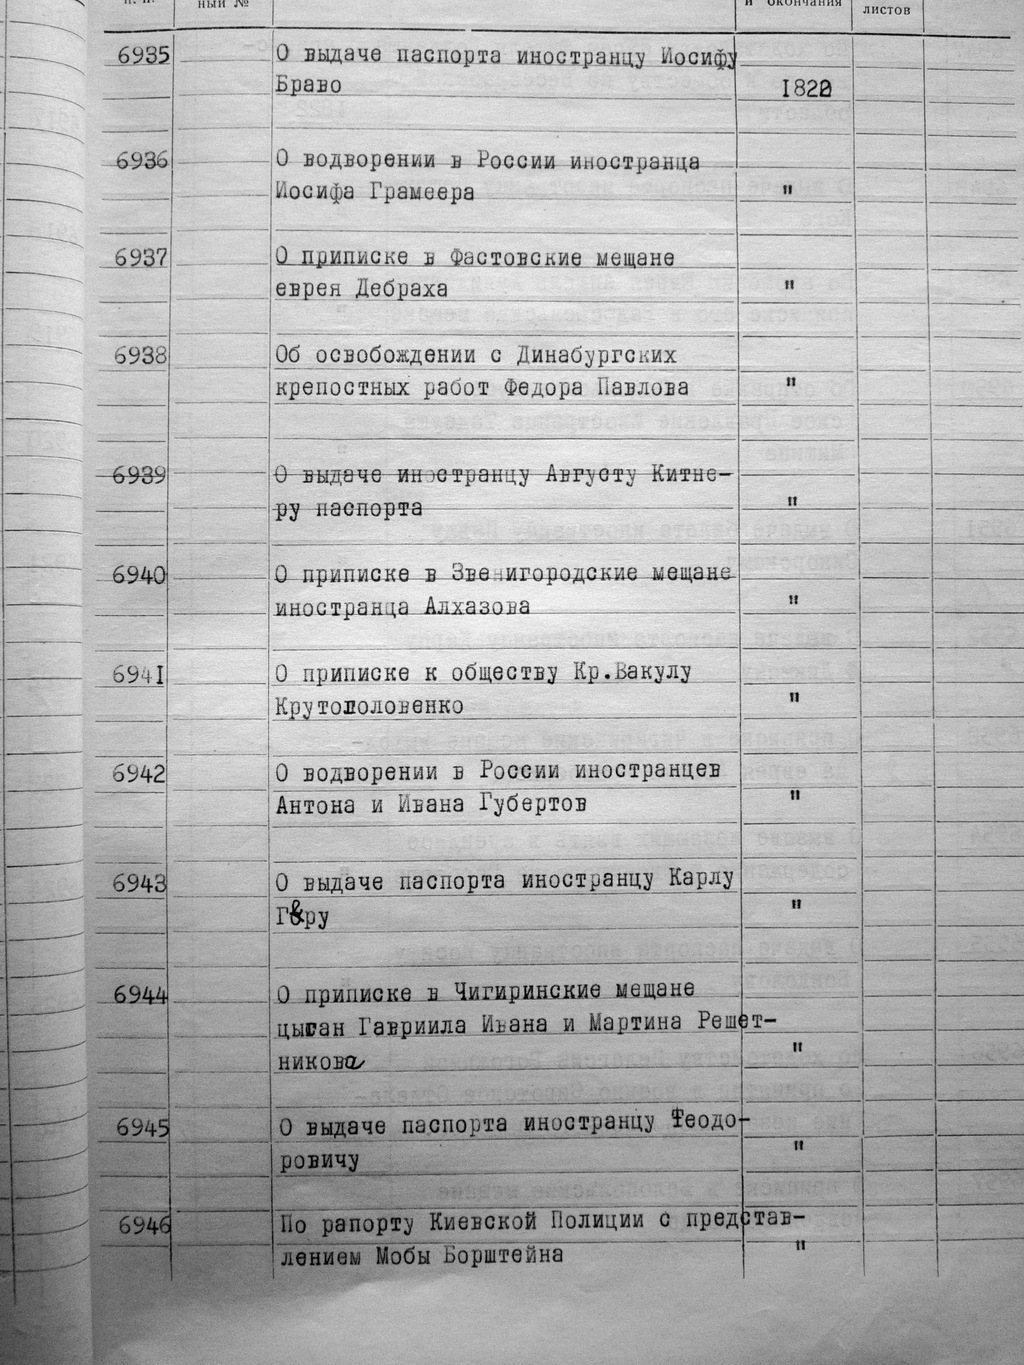 ный №
и окончания
листов
6935 О выдаче паспорта иностранцу Иосифу
Браво 1822
6936 О водворении в России иностранца
Иосифа Грамеера "
6937 О приписке в Фастовские мещане
еврея Дебраха "
6938 Об освобождении с Динабургских
крепостных работ Федора Павлова "
6939 О выдаче иностранцу Августу Китне-
ру паспорта "
6940 О приписке в Звенигородские мещане
иностранца Алхазова "
6941 О приписке к обществу Кр.Вакулу
Крутоголовенко "
6942 О водворении в России иностранцев
Антона и Ивана Губертов "
6943 О выдаче паспорта иностранцу Карлу
"
6944 О приписке в Чигиринские мещане
цыган Гавриила Ивана и Мартина Решет-
никова "
6945 О выдаче паспорта иностранцу Феодо-
ровичу "
6946 По рапорту Киевской Полиции с представ-
лением Мобы Борштейна "